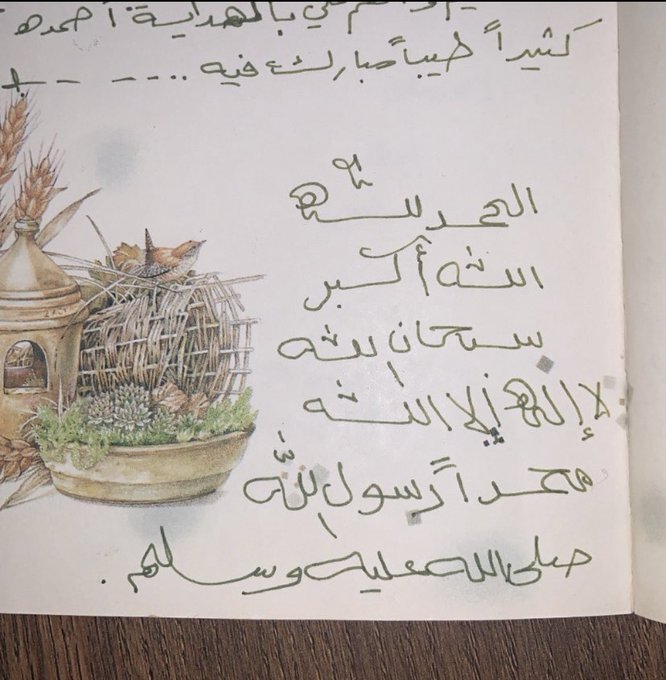 بالهداية. أحمده
كثيراً طيباً مبارك فيه .... - - -
الحمد لله
الله أكبر
سبحان الله
لا إله إلا الله
محمداً رسول الله
صلى الله عليه وسلم.